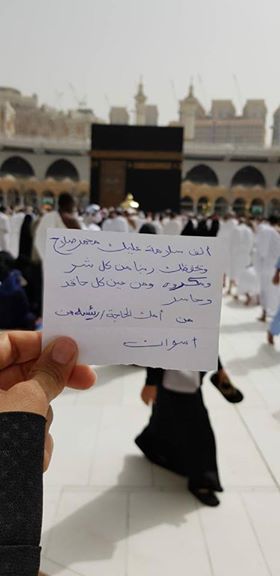 ألف سلامة عليك محمد صلاح
ويحفظك ربنا من كل شر
ومكروه ومن عين كل حاقد
وحاسد
من أمك الحاجة / رئيسه من
اسوان